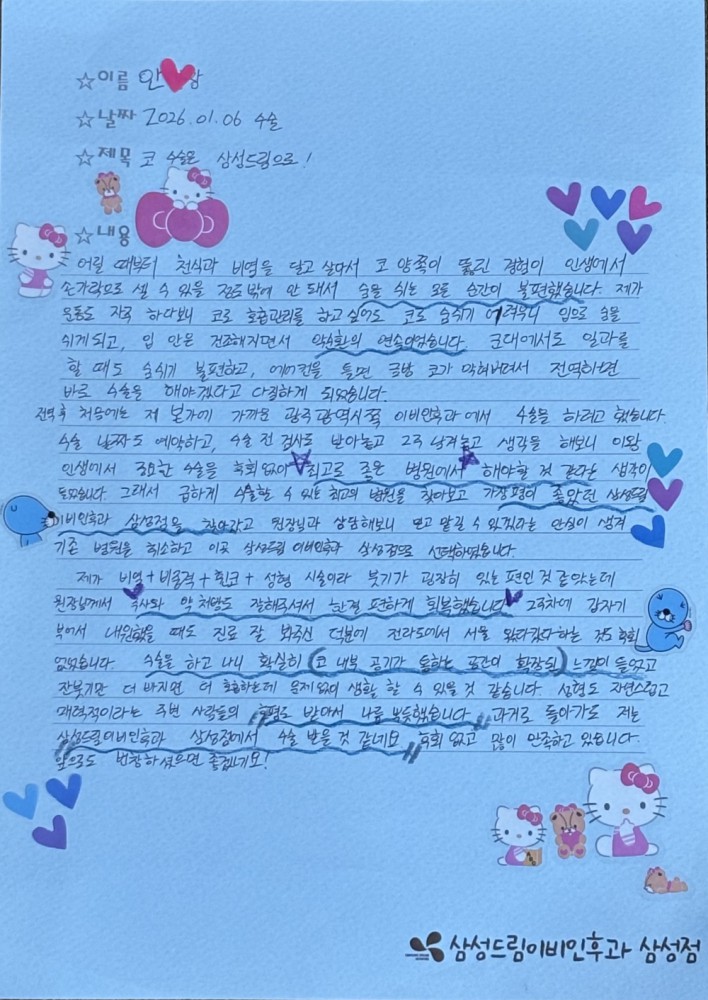 ☆이름 안 항
☆날짜 2026.01.06 수술
☆제목 코 수술은 삼성드림으로!
☆내용
어릴 때부터 천식과 비염을 달고 살아서 코 양쪽이 뚫린 경험이 인생에서
손가락으로 셀 수 있을 정도밖에 안 돼서 숨을 쉬는 모든 순간이 불편했습니다. 제가
운동도 자주 하다보니 코로 호흡관리를 하고 싶어도 코로 숨쉬기 어려우니 입으로 숨을
쉬게되고, 입 안은 건조해지면서 악순환의 연속이었습니다. 군대에서도 일과를
할 때도 숨쉬기 불편하고, 에어컨을 틀면 금방 코가 막혀버려서 전역하면
바로 수술을 해야겠다고 다짐하게 되었습니다.
전역 후 처음에는 제 본가에 가까운 광주광역시쪽 이비인후과에서 수술을 하려고 했습니다.
수술 날짜도 예약하고, 수술 전 검사도 받아놓고 2주 남겨놓고 생각을 해보니 이왕
인생에서 중요한 수술을 후회없이 최고로 좋은 병원에서 해야할 것 같다는 생각이
들었습니다. 그래서 급하게 수술할 수 있는 최고의 병원을 찾아보고 가장 평이 좋았던 삼성드림
이비인후과 삼성점을 찾아라고 원장님과 상담해보니 믿고 맡길 수 있겠다는 안심이 생겨
기존 병원을 취소하고 이곳 삼성드림 이비인후과 삼성점으로 선택하였습니다.
제가 비염+비중격+휜코+ 성형 시술이라 붓기가 굉장히 있는 편인 것 같았는데
원장님께서 주사와 약 처방도 잘해주셔서 한결 편하게 회복했습니다 2주차에 갑자기
부어서 내원했을 때도 진료 잘 봐주신 덕분에 전라도에서 서울 왔다갔다 하는 것도 후회
없었습니다. 수술을 하고 나니 확실히 (코 내부 공기가 통하는 공간이 확장된) 느낌이 들었고
잔붓기만 더 빠지면 더 호흡하는데 문제없이 생활 할 수 있을 것 같습니다. 성형도 자연스럽고
매력적이라는 주변 사람들의 호평도 받아서 나름 뿌듯했습니다. "과거로 돌아가도 저는
삼성드림이비인후과 삼성점에서 수술 받을 것 같네요" 후회 없고 많이 만족하고 있습니다.
앞으로도 번창하셨으면 좋겠네요!
삼성드림이비인후과 삼성점